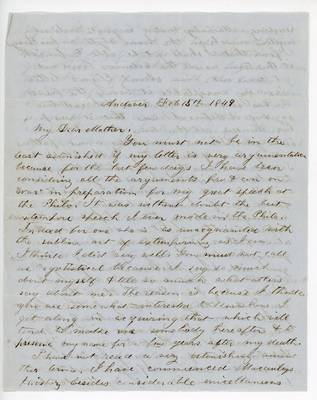 Andover Feb 15th 1849
My Dear Mother,
You must not be in the
least astonished if my letter is very argumentative
because for the last few days I have been
considering all the arguments pro & con on
War in preparation for my great speech at
the Philo. It was without doubt the best
extempore speech I ever made in the Philo.
Indeed for one who is so unacquainted with
the sublime art of extemporizing as I am
I think I did very well. You must not call
me egotistical because I say so much
about myself & tell so much what others
say about me. The reason is because I think
you are somewhat interested to know how I
get along in acquiring that which will
tend to make me somebody hereafter & to
preserve my name for a few years after my death.
I have not read a very astonishing amount
this term. I have commenced Macaulay's
History besides considerable miscellaneous